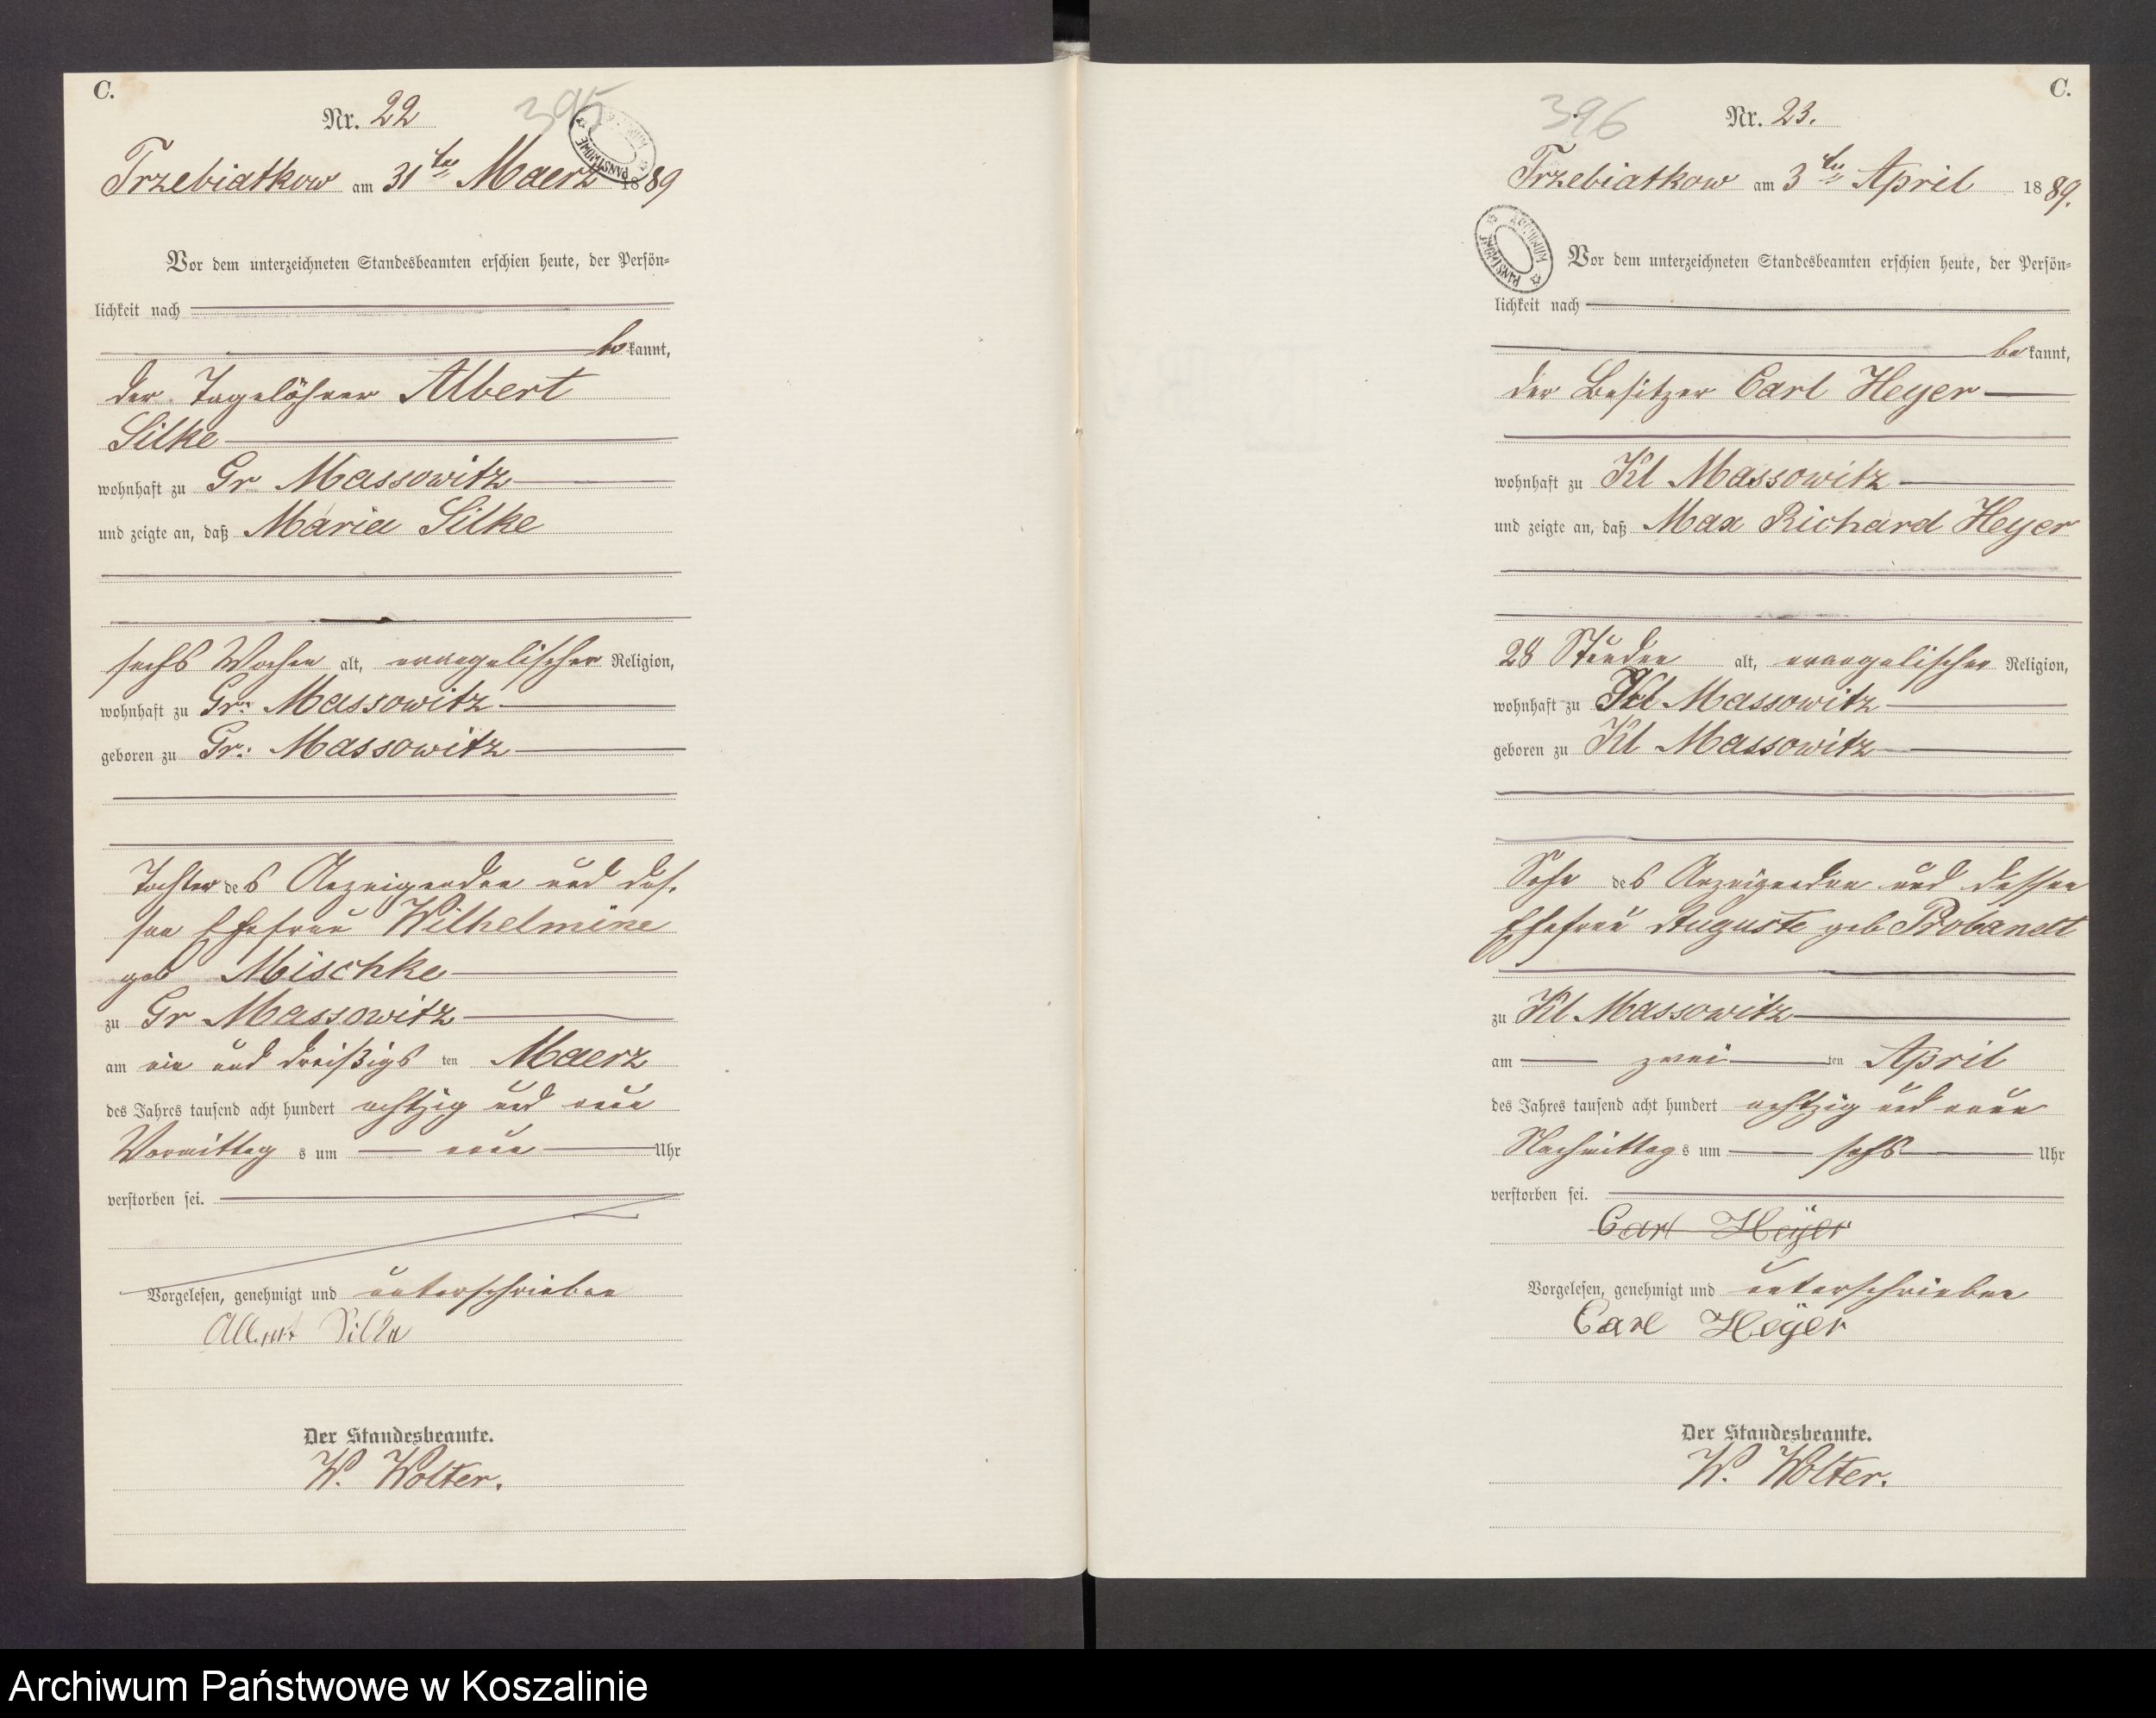 C.
Nr. 22
395
Trzebiatkow am 31ten Maerz 1889
Vor dem unterzeichneten Standesbeamten erschien heute, der Persön-
lichkeit nach
bekannt,
der Tagelöhner Albert
Silke
wohnhaft zu Gr Massowitz
und zeigte an, daß Maria Silke
sechs Wochen alt, evangelischer Religion,
wohnhaft zu Gr. Massowitz
geboren zu Gr. Massowitz
Tochter des Anzeigenden und des-
sen Ehefrau Wilhelmine
geb Mischke
zu Gr Massowitz
am ein und dreißigsten Maerz
des Jahres tausend acht hundert achtzig und neun
Vormittags um neun Uhr
verstorben sei.
Vorgelesen, genehmigt und unterschrieben
Albert Silke
Der Standesbeamte.
W. Wolter.
C.
396
Nr. 23.
Trzebiatkow am 3ten April 1889.
Vor dem unterzeichneten Standesbeamten erschien heute, der Persön-
lichkeit nach
bekannt,
der Besitzer Carl Heyer
wohnhaft zu Kl Massowitz
und zeigte an, daß Max Richard Heyer
28 Stunden alt, evangelischer Religion,
wohnhaft zu Kl Massowitz
geboren zu Kl Massowitz
Sohn des Anzeigenden und dessen
Ehefrau Auguste geb Probandt
zu Kl Massowitz
am zweiten April
des Jahres tausend acht hundert achtzig und neun
Nachmittags um sechs Uhr
verstorben sei.
Carl Heÿer
Vorgelesen, genehmigt und unterschrieben
Carl Heÿer
Der Standesbeamte.
W. Wolter.
Archiwum Państwowe w Koszalinie